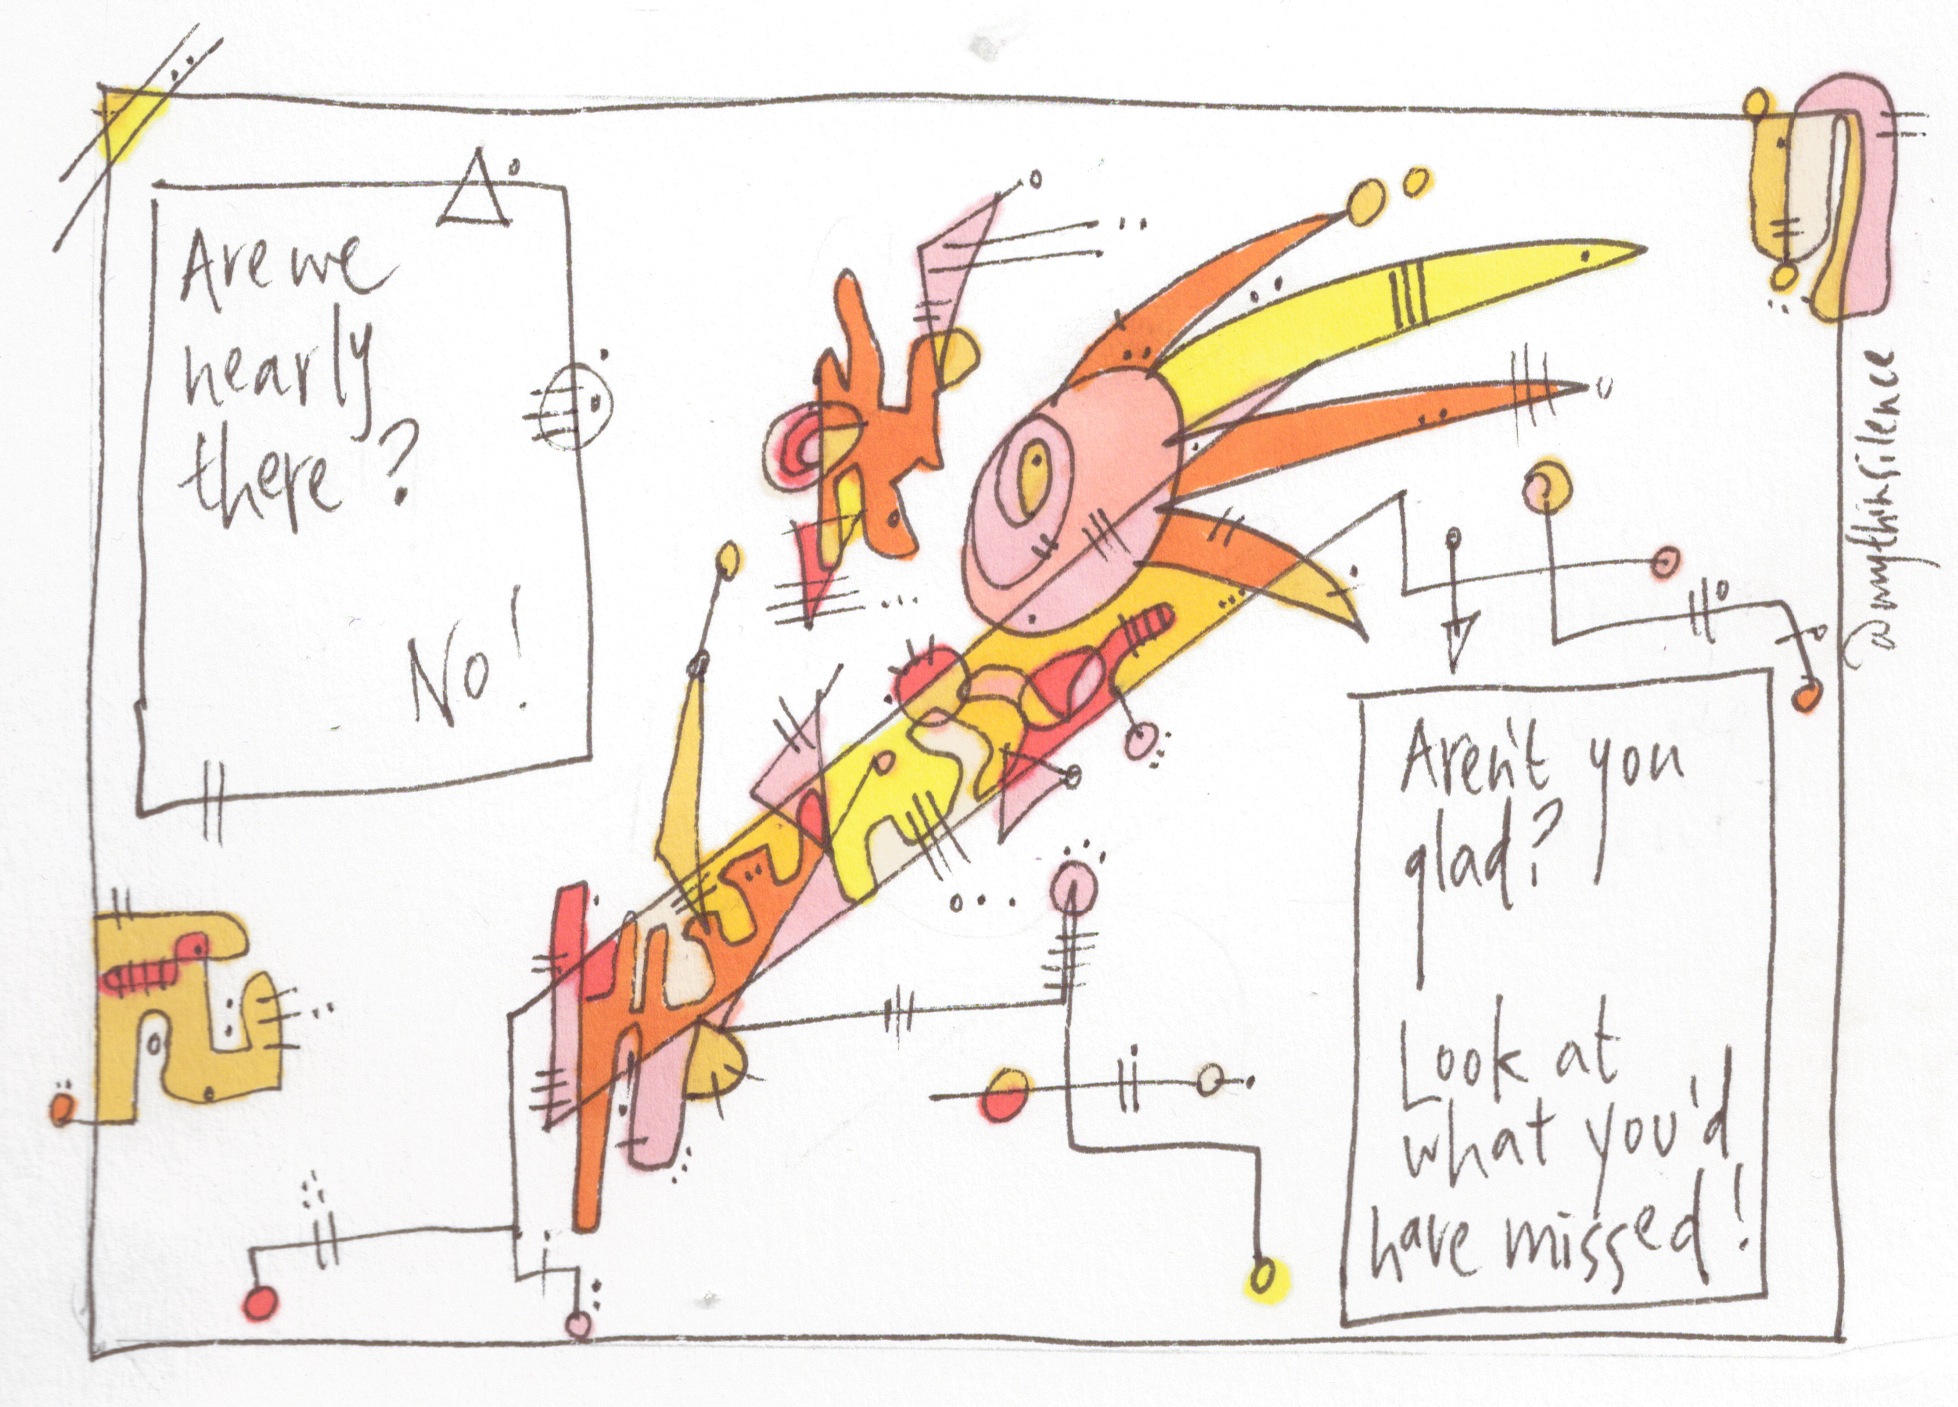 Are we
nearly
there?
No!
Aren't you
glad?
Look at
what you'd
have missed!
@mythinsilence